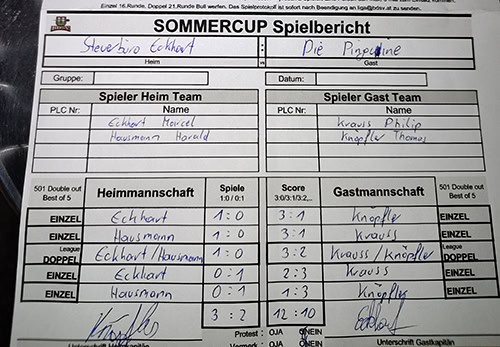 Einzel 16.Runde, Doppel 21.Runde Bull werfen. Das Spielprotokoll ist sofort nach Beendigung an liga@bdsv.at zu senden.
SOMMERCUP Spielbericht
Steuerbüro Eckhart : Die Pinguine
Heim vs Gast
Gruppe: Datum:
Spieler Heim Team Spieler Gast Team
PLC Nr: Name PLC Nr: Name
Eckhart Marcel Krauss Philip
Hausmann Harald Knöpfler Thomas
501 Double out Best of 5 Heimmannschaft Spiele 1:0 / 0:1 Score 3:0/3:1/3:2,... Gastmannschaft 501 Double out Best of 5
EINZEL Eckhart 1:0 3:1 Knöpfler EINZEL
EINZEL Hausmann 1:0 3:1 Krauss EINZEL
League DOPPEL Eckhart/Hausmann 1:0 3:2 Krauss/Knöpfler League DOPPEL
EINZEL Eckhart 0:1 2:3 Krauss EINZEL
EINZEL Hausmann 0:1 1:3 Knöpfler EINZEL
3:2 12:10
Protest: OJA NEIN
Unterschrift Heimkapitän Vermerk: OJA NEIN Unterschrift Gastkapitän